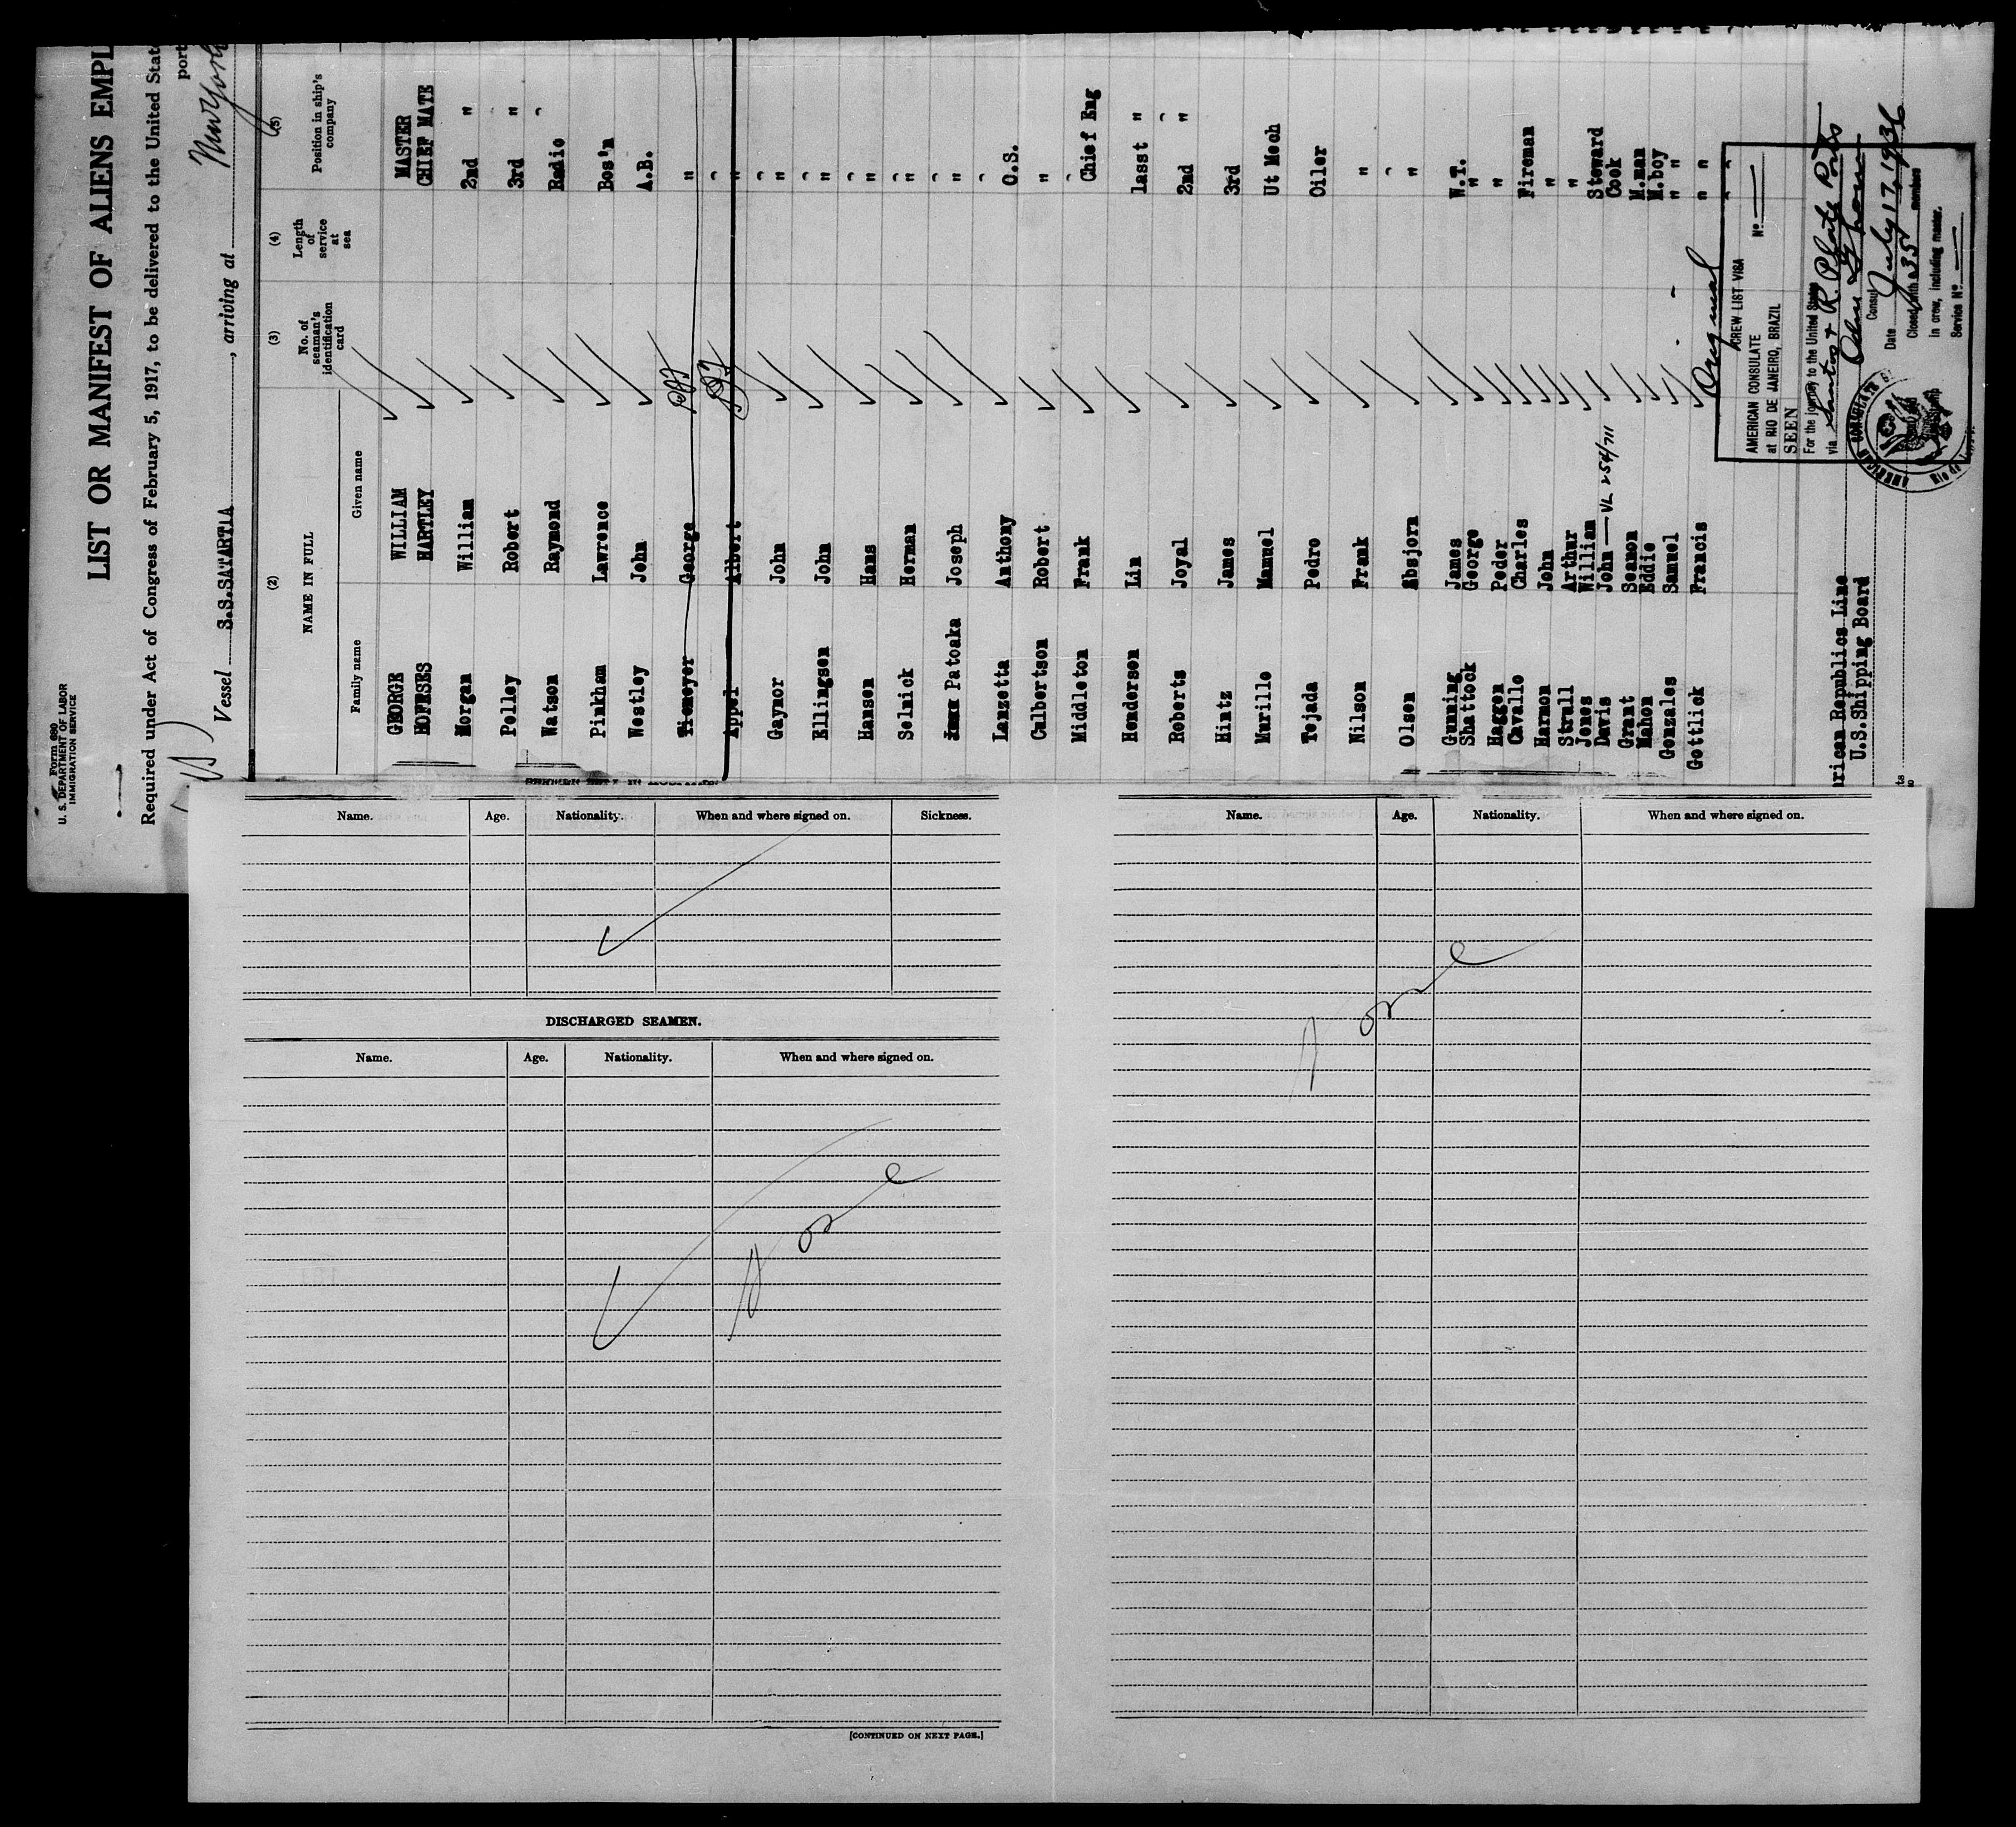 Form 680
U. S. DEPARTMENT OF LABOR
IMMIGRATION SERVICE
LIST OR MANIFEST OF ALIENS EMPL
Required under Act of Congress of February 5, 1917, to be delivered to the United Stat
port
Vessel S.S.SATARTIA, arriving at New York
(2) (3) (4) (5)
NAME IN FULL No. of seaman's identification card Length of service at sea Position in ship's company
Family name Given name
GEORGE WILLIAM MASTER
HOFFSES HARTLEY CHIEF MATE
Morgan William 2nd "
Polley Robert 3rd "
Watson Raymond Radio
Pinkham Lawrence Bos'n
Westley John A.B.
Tiemeyer George "
Appel Albert "
Gaynor John "
Ellingsen John "
Hansen Hans "
Selnick Herman "
Patoaka Joseph "
Lanzetta Anthony O.S.
Culbertson Robert "
Middleton Frank Chief Eng
Henderson Lin 1asst "
Roberts Joyal 2nd "
Hintz James 3rd
Murillo Manuel Ut Mech
Tejada Pedro Oiler
Nilson Frank "
Olsen Absjorn "
Gunning James W.T.
Shattock George "
Haggen Peder "
Cavallo Charles Fireman
Harmon John "
Strull Arthur "
Jones William Steward
Davis John VL 254/711 Cook
Grant Seamon M.man
Mahon Eddie M.boy
Gonzales Samuel " "
Gottlick Francis " "
Original
CREW LIST VISA
AMERICAN CONSULATE Nº
at RIO DE JANEIRO, BRAZIL
SEEN
For the journey to the United States
via Santos & R. Plate Ports
Consul
Date July 17, 1936
Closed with 35 members
in crew, including master.
Service Nº
AMERICAN CONSULATE
rican Republics Line
U.S.Shipping Board
ts
Name. Age. Nationality. When and where signed on. Sickness.
DISCHARGED SEAMEN.
Name. Age. Nationality. When and where signed on.
None
[CONTINUED ON NEXT PAGE.]
Name. Age. Nationality. When and where signed on.
None